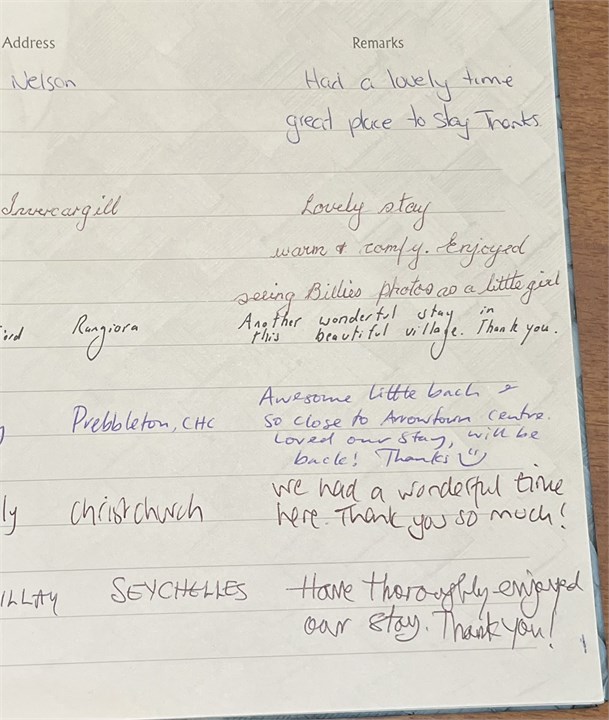 Address Remarks
Nelson Had a lovely time
great place to stay Thanks.
Invercargill Lovely stay
warm & comfy. Enjoyed
seeing Billies photos as a little girl
ord Rangiora Another wonderful stay in
this beautiful village. Thank you.
Awesome little bach &
Prebbleton, CHC so close to Arrowtown centre.
Loved our stay, will be
back! Thanks
we had a wonderful time
ly Christchurch here. Thank you so much!
ILLAY SEYCHELLES Have thoroughly enjoyed
our stay. Thank you!